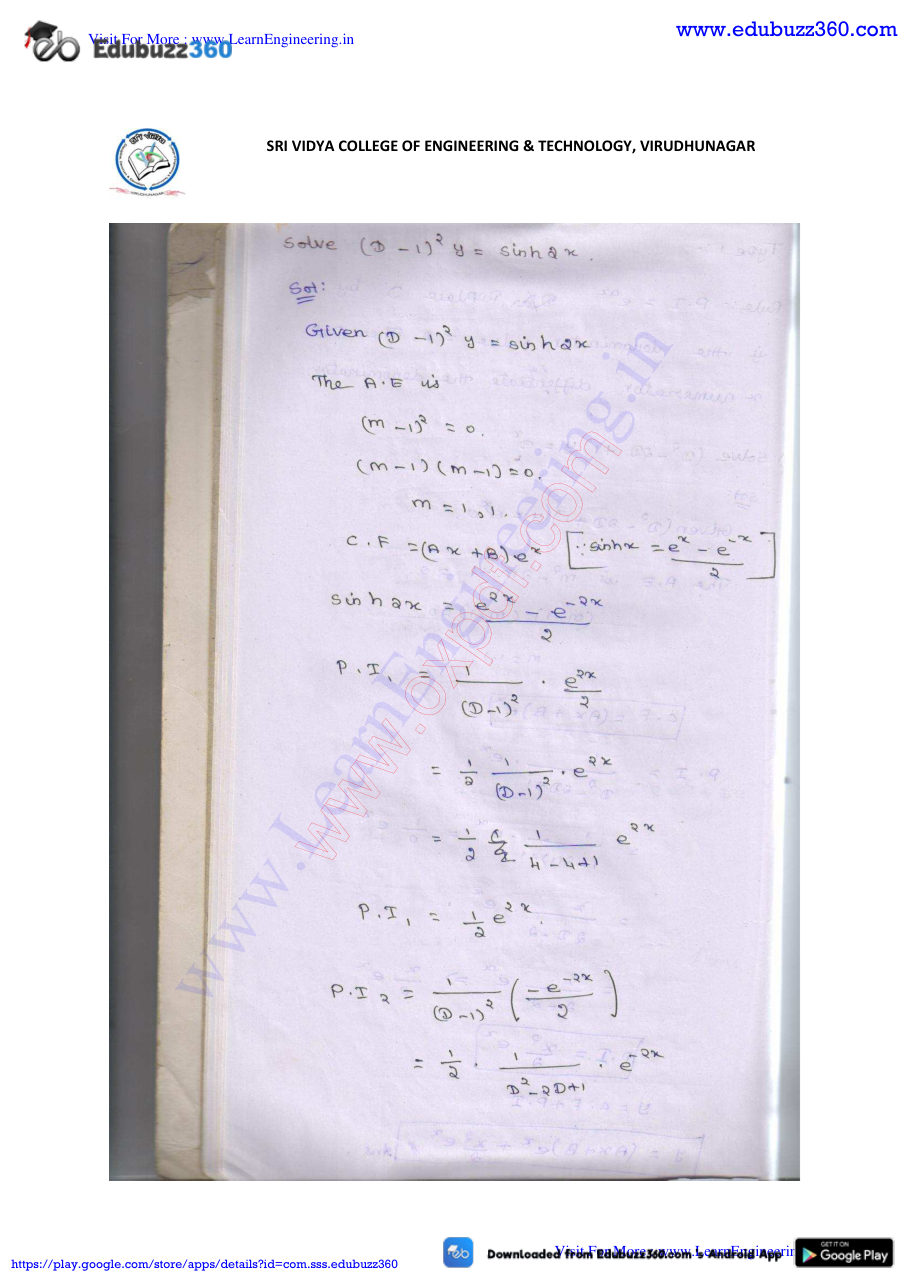 Visit For More : www.LearnEngineering.in
Edubuzz360
www.edubuzz360.com
SRI VIDYA COLLEGE OF ENGINEERING & TECHNOLOGY, VIRUDHUNAGAR
VIRUDHUNAGAR
Solve (D - 1)² y = sinh2x.
Sol:
Given (D - 1)² y = sinh2x
The A.E is
(m - 1)² = 0.
(m - 1)(m - 1) = 0.
m = 1, 1.
C.F = (Ax + B) eˣ [∵ sinhx = (eˣ - e⁻ˣ)/2]
sinh2x = (e²ˣ - e⁻²ˣ)/2
P.I₁ = 1/(D-1)² · e²ˣ/2
= 1/2 1/(D-1)² · e²ˣ
= 1/2 1/(4-4+1) e²ˣ
P.I₁ = 1/2 e²ˣ.
P.I₂ = 1/(D-1)² (-e⁻²ˣ/2)
= 1/2 · 1/(D²-2D+1) · e⁻²ˣ
www.LearnEngineering.in
www.oxpdf.com
https://play.google.com/store/apps/details?id=com.sss.edubuzz360
Downloaded from Edubuzz360.com 's Android App
Visit For More : www.LearnEngineerin
GET IT ON
Google Play